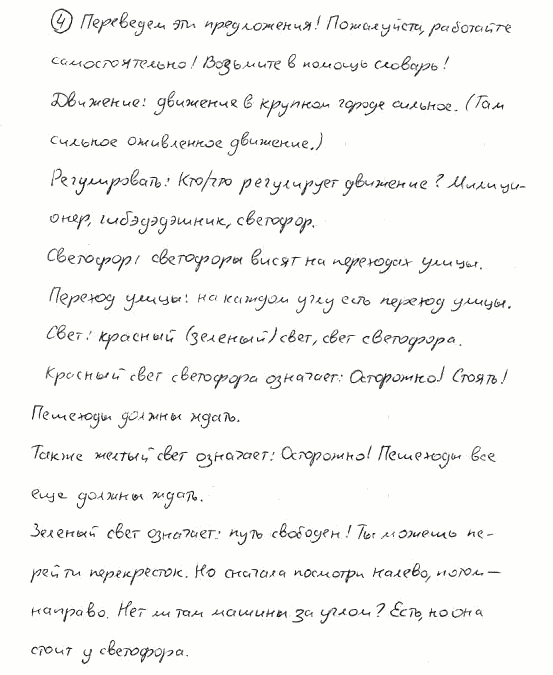 ④ Переведем эти предложения! Пожалуйста, работайте
самостоятельно! Возьмите в помощь словарь!
Движение: движение в крупном городе сильное. (Там
сильное оживленное движение.)
Регулировать: Кто/что регулирует движение? Милици-
онер, гибэдэдэшник, светофор.
Светофор: светофоры висят на переходах улицы.
Переход улицы: на каждом углу есть переход улицы.
Свет: красный (зеленый) свет, свет светофора.
Красный свет светофора означает: Осторожно! Стоять!
Пешеходы должны ждать.
Также желтый свет означает: Осторожно! Пешеходы все
еще должны ждать.
Зеленый свет означает: путь свободен! Ты можешь пе-
рейти перекресток. Но сначала посмотри налево, потом —
направо. Нет ли там машины за углом? Есть, но она
стоит у светофора.